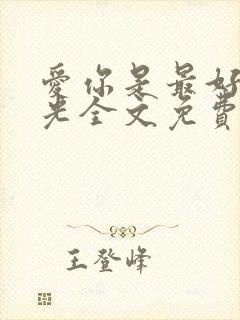 爱你是最好
光全文免费
王登峰